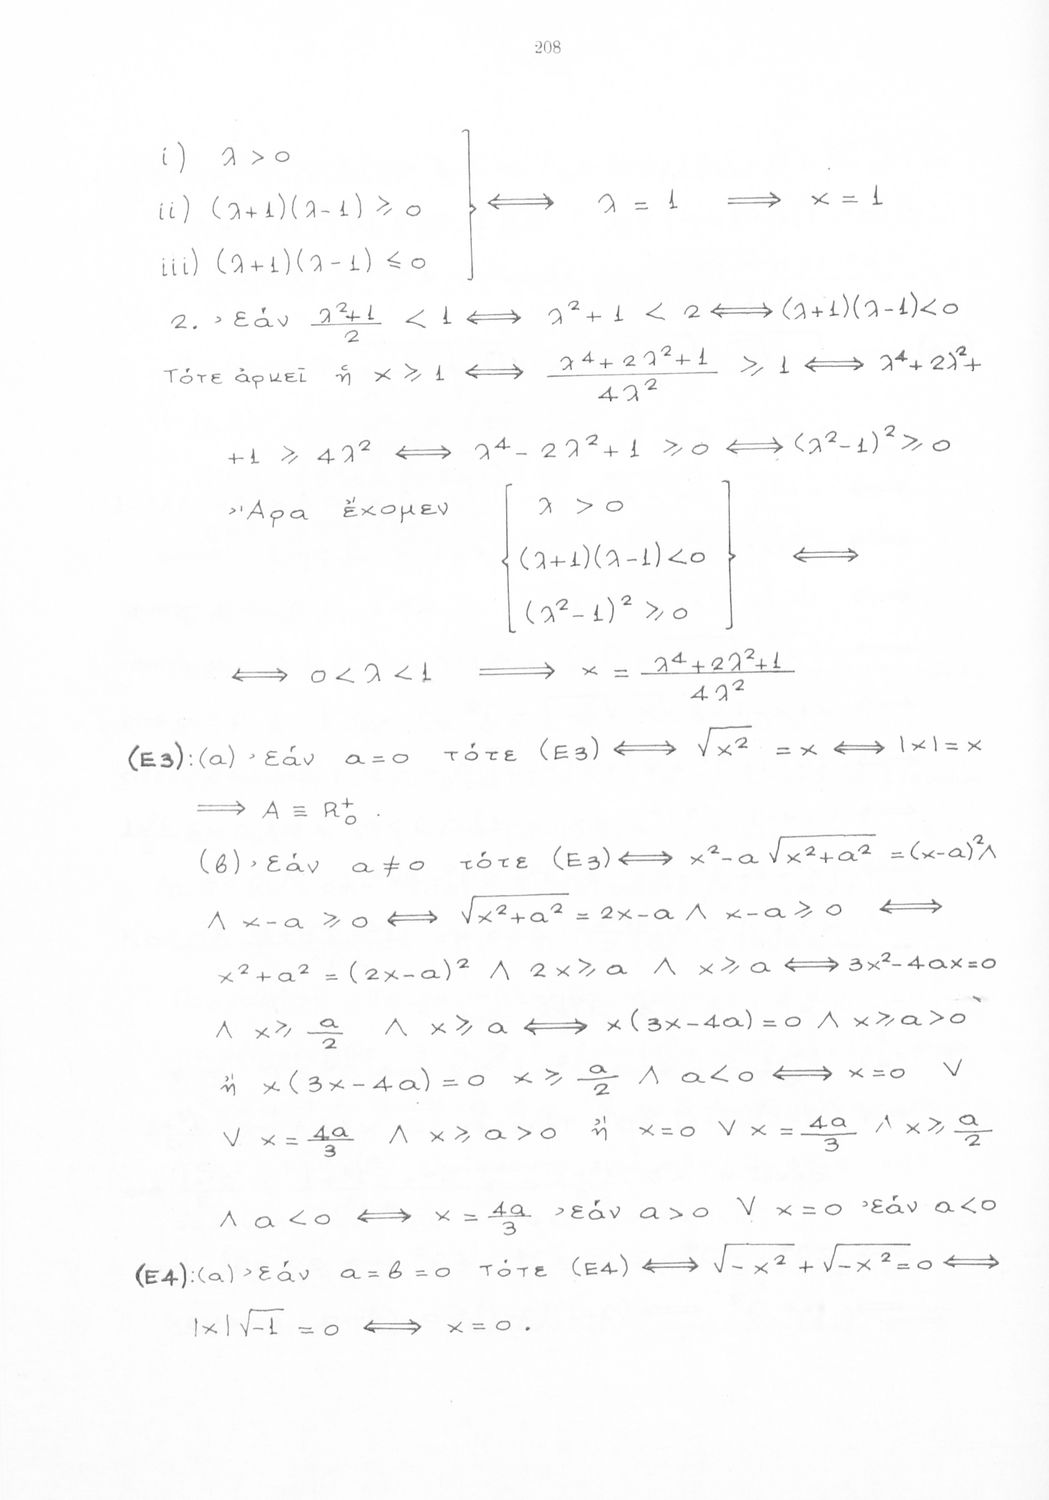 208
i) λ > 0
ii) (λ+1)(λ-1) ⩾ 0 } ⟺ λ = 1 ⟹ x = 1
iii) (λ+1)(λ-1) ⩽ 0
2. ᾽Εάν (λ²+1)/2 < 1 ⟺ λ²+1 < 2 ⟺ (λ+1)(λ-1)<0
Τότε ἀρκεῖ ἤ x ⩾ 1 ⟺ (λ⁴+2λ²+1)/(4λ²) ⩾ 1 ⟺ λ⁴+2λ²+
+1 ⩾ 4λ² ⟺ λ⁴-2λ²+1 ⩾ 0 ⟺ (λ²-1)² ⩾ 0
῎Αρα ἔχομεν { λ > 0
(λ+1)(λ-1)<0 } ⟺
(λ²-1)² ⩾ 0
⟺ 0<λ<1 ⟹ x = (λ⁴+2λ²+1)/(4λ²)
(E3):(a) ᾽Εάν a=0 τότε (E3) ⟺ √(x²) = x ⟺ |x|=x
⟹ A ≡ R₀⁺ .
(β) ᾽Εάν a≠0 τότε (E3) ⟺ x²-a√(x²+a²) =(x-a)²∧
∧ x-a ⩾ 0 ⟺ √(x²+a²) = 2x-a ∧ x-a ⩾ 0 ⟺
x²+a² = (2x-a)² ∧ 2x⩾a ∧ x⩾a ⟺ 3x²-4ax=0
∧ x⩾ a/2 ∧ x⩾a ⟺ x(3x-4a)=0 ∧ x⩾a>0
ἤ x(3x-4a)=0 x⩾ a/2 ∧ a<0 ⟺ x=0 ∨
∨ x= 4a/3 ∧ x⩾a>0 ἤ x=0 ∨ x= 4a/3 ∧ x⩾ a/2
∧ a<0 ⟺ x= 4a/3 ᾽εάν a>0 ∨ x=0 ᾽εάν a<0
(E4):(a) ᾽Εάν a=β=0 τότε (E4) ⟺ √(-x²)+√(-x²)=0 ⟺
|x|√(-1) =0 ⟺ x=0 .